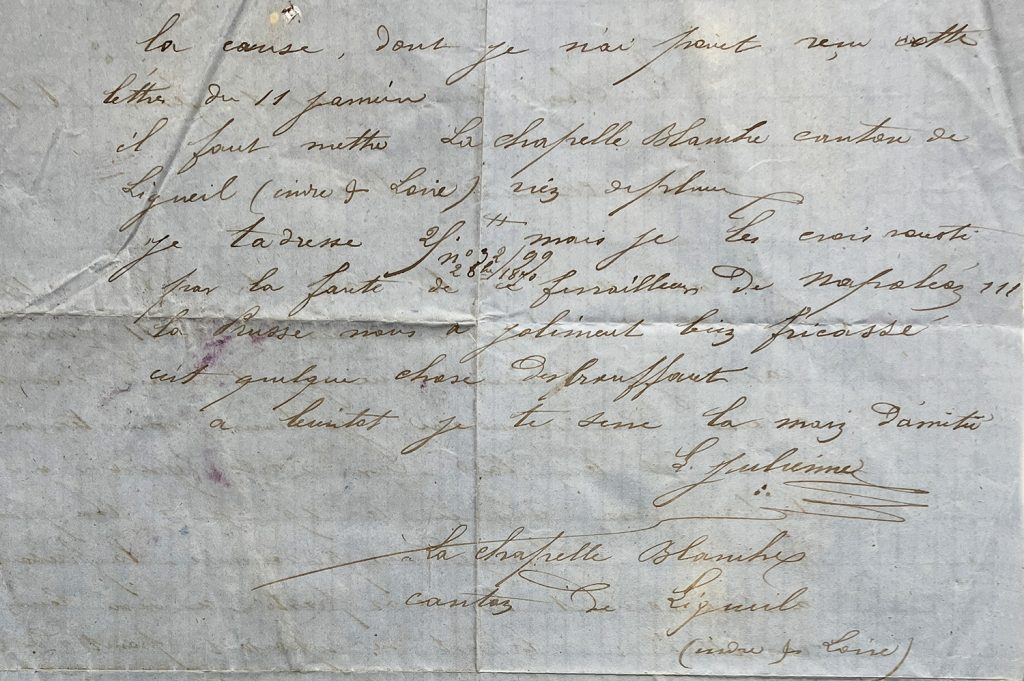 la cause, dont je n'ai point reçu cette
lettre du 11 janvier
il faut mettre La Chapelle Blanche canton de
Ligueil (indre & Loire) riez de plus
je tadresse 2f. mais je les crois rousti
n° 32/99
28 1870
par la faute de ce ferrailleur de Napoléon III
la Prusse nous a joliment biez fricassé
cest quelque chose
a bientot je te serre la maiz d'amitié
L. Julienne
La Chapelle Blanche
cantoz de Ligueil
(indre & Loire)